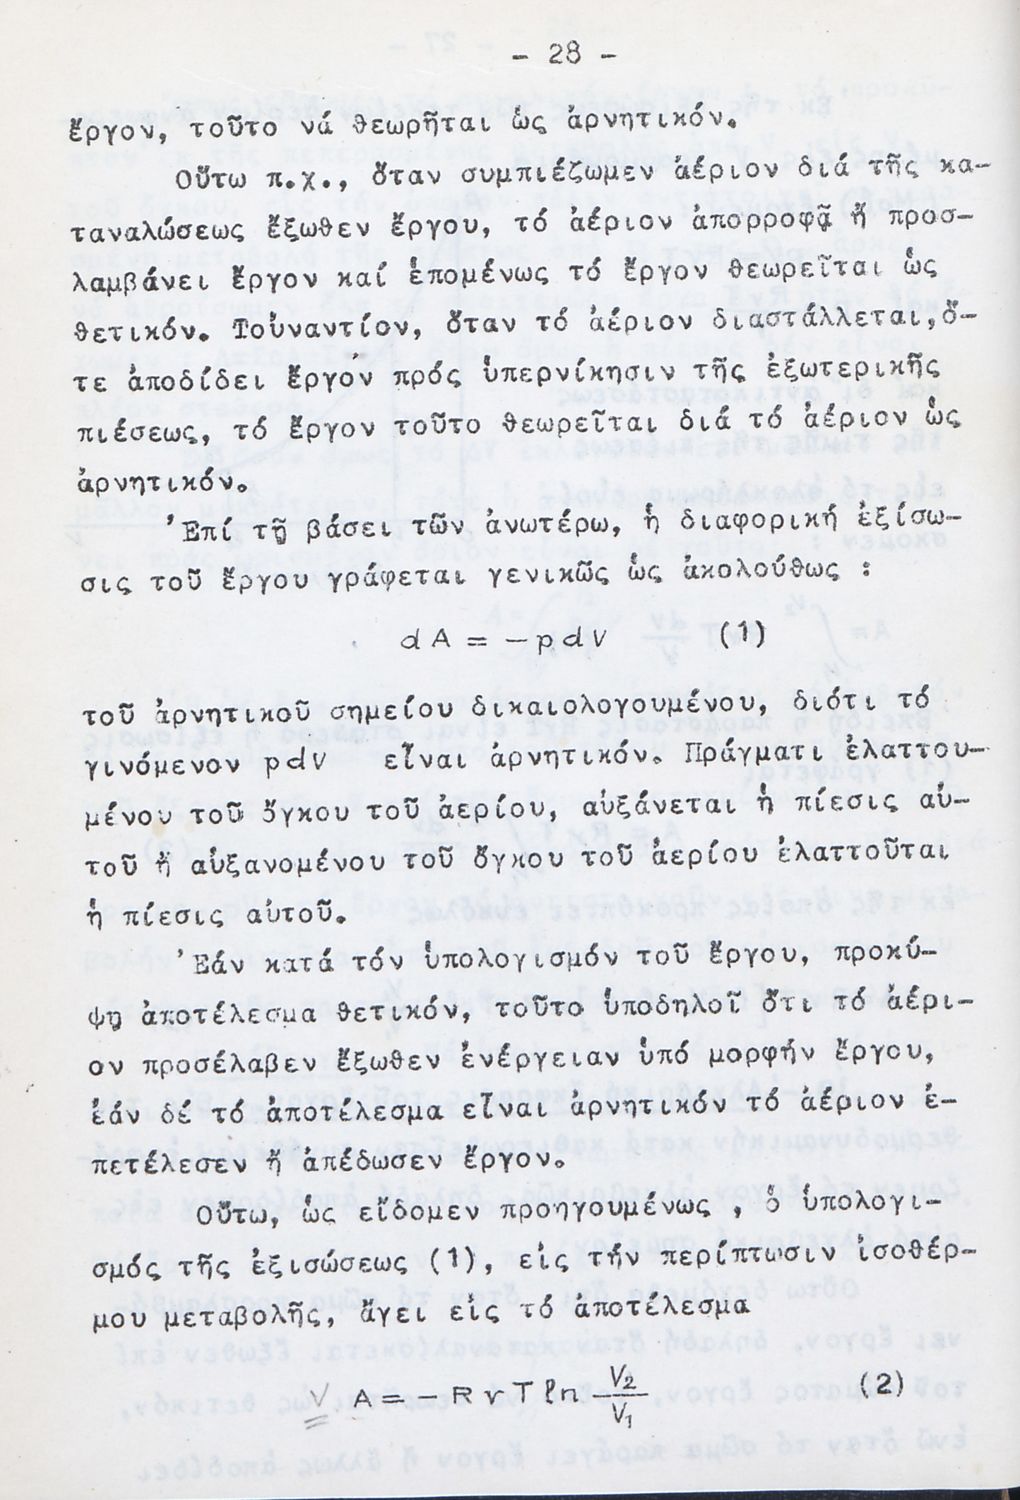 - 28 -
ἔργον, τοῦτο νά θεωρῆται ὡς ἀρνητικόν.
Οὕτω π.χ., ὅταν συμπιέζωμεν ἀέριον διά τῆς κα-
ταναλώσεως ἔξωθεν ἔργου, τό ἀέριον ἀπορροφᾷ ἤ προσ-
λαμβάνει ἔργον καί ἑπομένως τό ἔργον θεωρεῖται ὡς
θετικόν. Τοὐναντίον, ὅταν τό ἀέριον διαστάλλεται,ὅ-
τε ἀποδίδει ἔργον πρός ὑπερνίκησιν τῆς ἐξωτερικῆς
πιέσεως, τό ἔργον τοῦτο θεωρεῖται διά τό ἀέριον ὡς
ἀρνητικόν.
Ἐπί τῇ βάσει τῶν ἀνωτέρω, ἡ διαφορική ἐξίσω-
σις τοῦ ἔργου γράφεται γενικῶς ὡς ἀκολούθως :
dA = -pdV (1)
τοῦ ἀρνητικοῦ σημείου δικαιολογουμένου, διότι τό
γινόμενον pdV εἶναι ἀρνητικόν. Πράγματι ἐλαττου-
μένου τοῦ ὄγκου τοῦ ἀερίου, αὐξάνεται ἡ πίεσις αὐ-
τοῦ ἤ αὐξανομένου τοῦ ὄγκου τοῦ ἀερίου ἐλαττοῦται
ἡ πίεσις αὐτοῦ.
Ἐάν κατά τόν ὑπολογισμόν τοῦ ἔργου, προκύ-
ψῃ ἀποτέλεσμα θετικόν, τοῦτο ὑποδηλοῖ ὅτι τό ἀέρι-
ον προσέλαβεν ἔξωθεν ἐνέργειαν ὑπό μορφήν ἔργου,
ἐάν δέ τό ἀποτέλεσμα εἶναι ἀρνητικόν τό ἀέριον ἐ-
πετέλεσεν ἤ ἀπέδωσεν ἔργον.
Οὕτω, ὡς εἴδομεν προηγουμένως , ὁ ὑπολογι-
σμός τῆς ἐξισώσεως (1), εἰς τήν περίπτωσιν ἰσοθέρ-
μου μεταβολῆς, ἄγει εἰς τό ἀποτέλεσμα
V A = - R ν T ln V₂/V₁ (2)